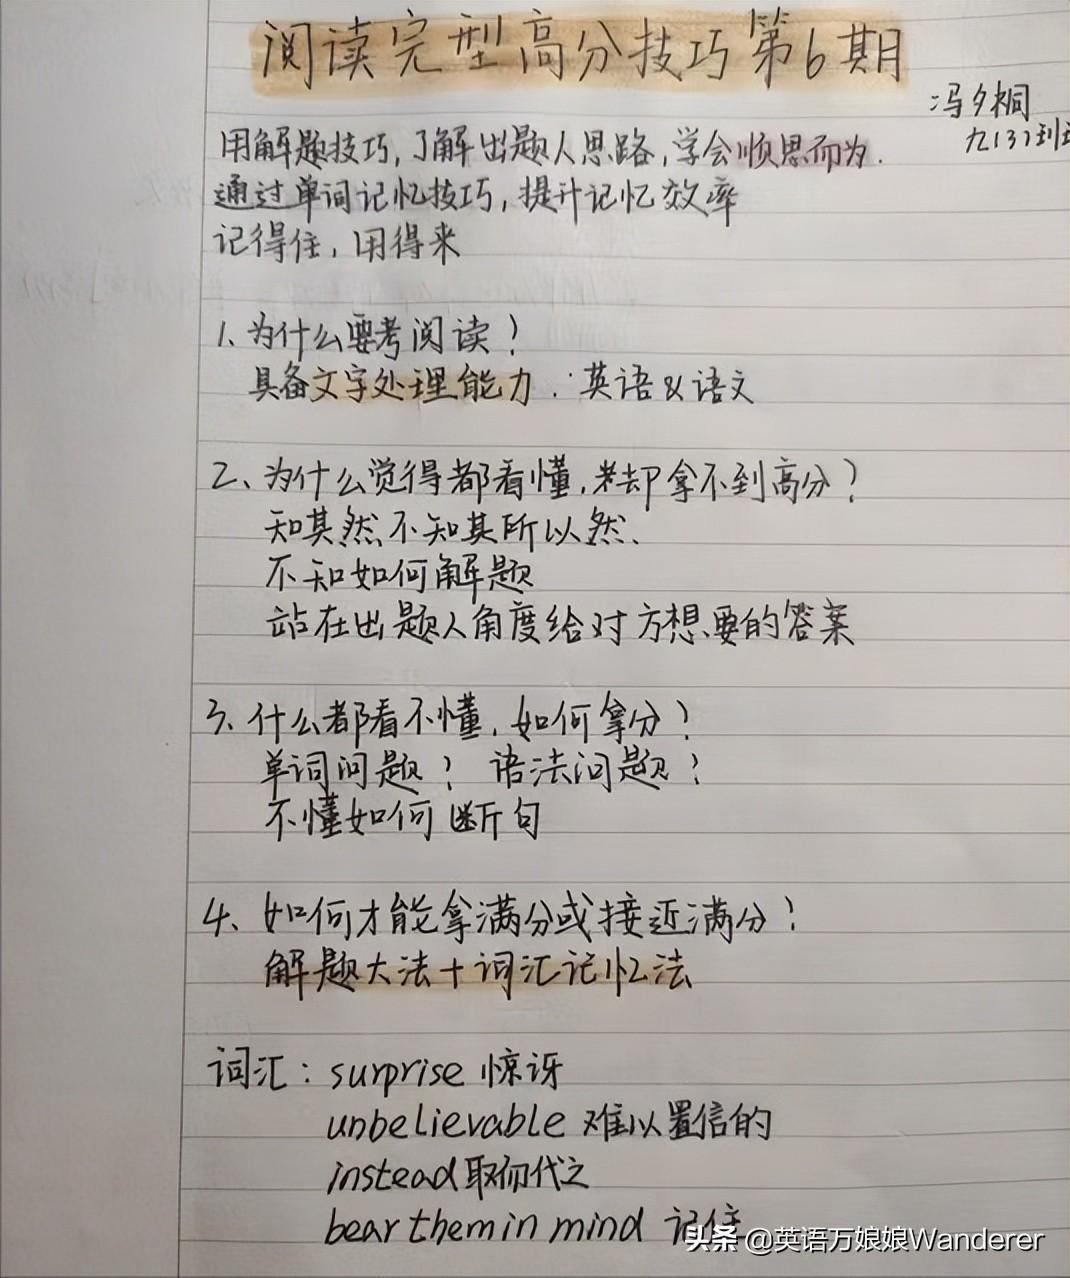 阅读完型高分技巧第6期
冯夕桐
九(3)班
用解题技巧,了解出题人思路,学会顺思而为.
通过单词记忆技巧,提升记忆效率
记得住,用得来
1、为什么要考阅读?
具备文字处理能力:英语&语文
2、为什么觉得都看懂,考却拿不到高分?
知其然不知其所以然、
不知如何解题
站在出题人角度给对方想要的答案
3、什么都看不懂,如何拿分?
单词问题? 语法问题?
不懂如何断句
4、如何才能拿满分或接近满分?
解题大法+词汇记忆法
词汇:surprise 惊讶
unbelievable 难以置信的
instead 取而代之
bear them in mind 记住
头条 @英语万娘娘Wanderer